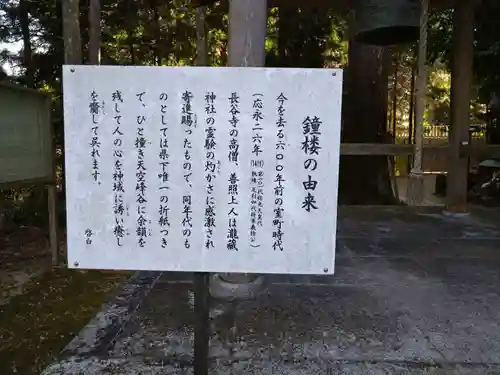 鐘楼の由来
今を去る六〇〇年前の室町時代
(応永二六年(1419)
長谷寺の高僧、善照上人は瀧蔵
神社の霊験の灼かさに感激され
寄進賜ったもので、同年代のも
のとしては県下唯一の折紙つき
で、ひと撞き天空峰谷に余韻を
残して人の心を神域に誘い癒し
を齎して呉れます。
啓白